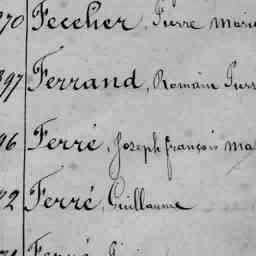 70 Fecelier, Pierre Marie
97 Ferrand, Romain Pierr
96 Ferré, Joseph françois ma
2 Ferré, Guillaume